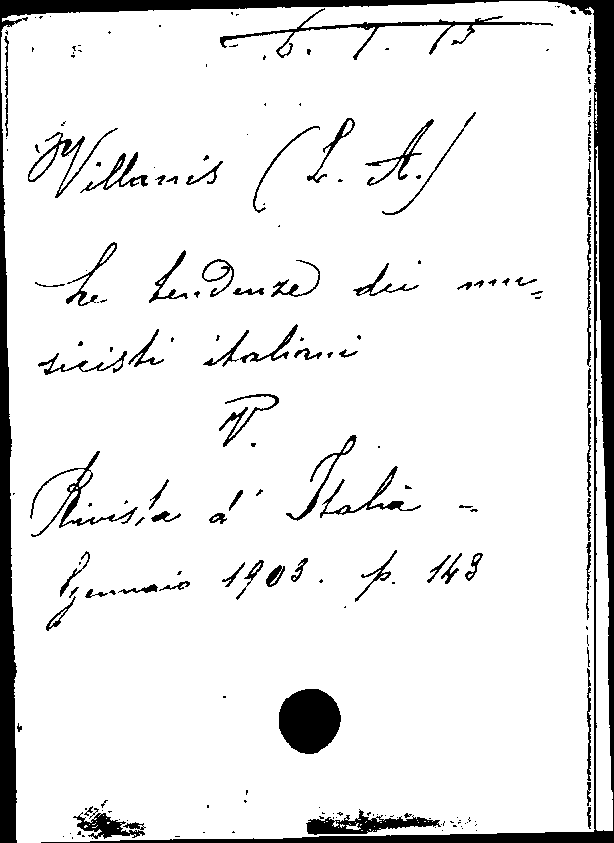 6. 7. 75
Villanis (L. A.)
Le tendenze dei mu=
sicisti italiani
V.
Rivista d'Italia -
Gennaio 1903. p. 143